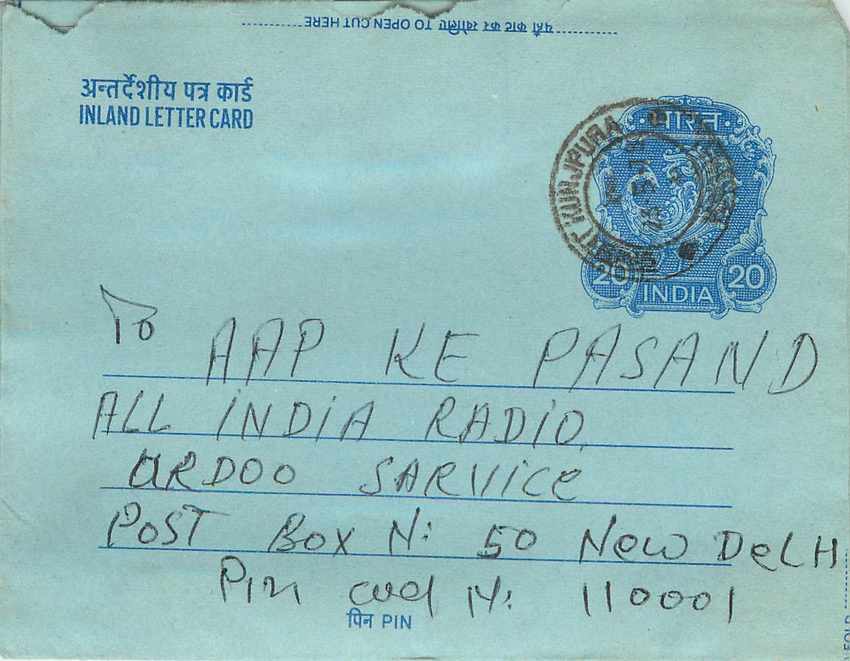 यहाँ काट कर खोलिए TO OPEN CUT HERE
अन्तर्देशीय पत्र कार्ड
INLAND LETTER CARD
भारत
KUNJPURA
20 INDIA 20
To AAP KE PASAND
ALL INDIA RADIO
URDOO SARVICE
POST BOX N: 50 NEW DELH
Pin cod N: 110001
पिन PIN
FOLD